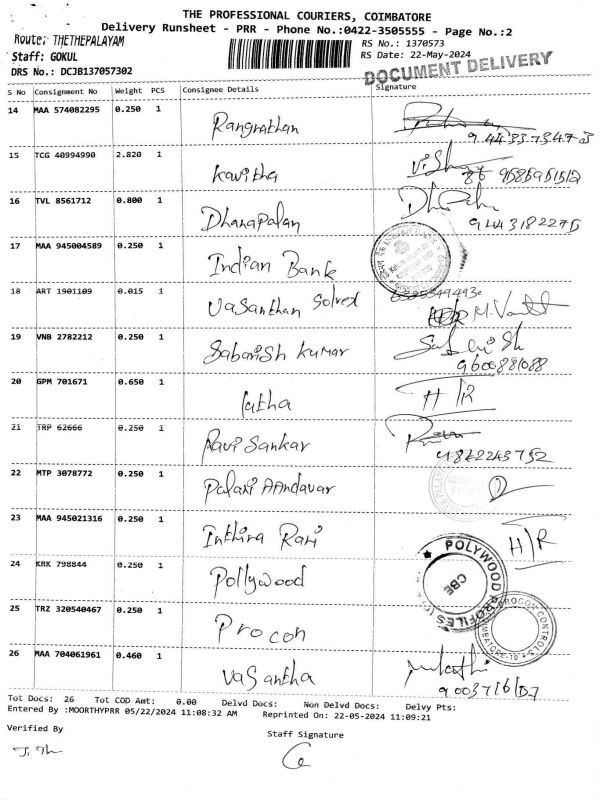 THE PROFESSIONAL COURIERS, COIMBATORE
Delivery Runsheet - PRR - Phone No.:0422-3505555 - Page No.:2
Route: THETHEPALAYAM
RS No.: 1370573
Staff: GOKUL
RS Date: 22-May-2024
DRS No.: DCJB137057302
DOCUMENT DELIVERY
S No Consignment No Weight PCS Consignee Details Signature
14 MAA 574082295 0.250 1 Rangnathan
15 TCG 40994990 2.820 1 Kavitha
16 TVL 8561712 0.800 1 Dhanapalan
17 MAA 945004589 0.250 1 Indian Bank
18 ART 1901109 0.015 1 Vasanthan Solved
19 VNB 2782212 0.250 1 Sabarish Kumar
9600881088
20 GPM 701671 0.650 1 latha H/R
21 TRP 62666 0.250 1 Ravi Sankar
22 MTP 3078772 0.250 1 Palani AAndavar
23 MAA 945021316 0.250 1 Inthira Rani H/R
24 KRK 798844 0.250 1 Pollywood
POLYWOOD PROFILES CBE
25 TRZ 320540467 0.250 1 Procon
26 MAA 704061961 0.460 1 Vasantha
Tot Docs: 26 Tot COD Amt: 0.00 Delvd Docs: Non Delvd Docs: Delvy Pts:
Entered By :MOORTHYPRR 05/22/2024 11:08:32 AM Reprinted On: 22-05-2024 11:09:21
Verified By
Staff Signature